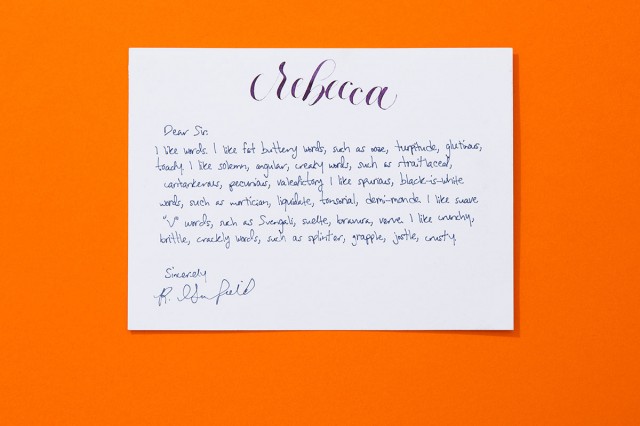 Rebecca
Dear Sir:
I like words. I like fat buttery words, such as ooze, turpitude, glutinous,
toady. I like solemn, angular, creaky words, such as straitlaced,
cantankerous, pecunious, valedictory. I like spurious, black-is-white
words, such as mortician, liquidate, tonsorial, demi-monde. I like suave
"V" words, such as Svengali, svelte, bravura, verve. I like crunchy,
brittle, crackly words, such as splinter, grapple, jostle, crusty.
Sincerely
R.